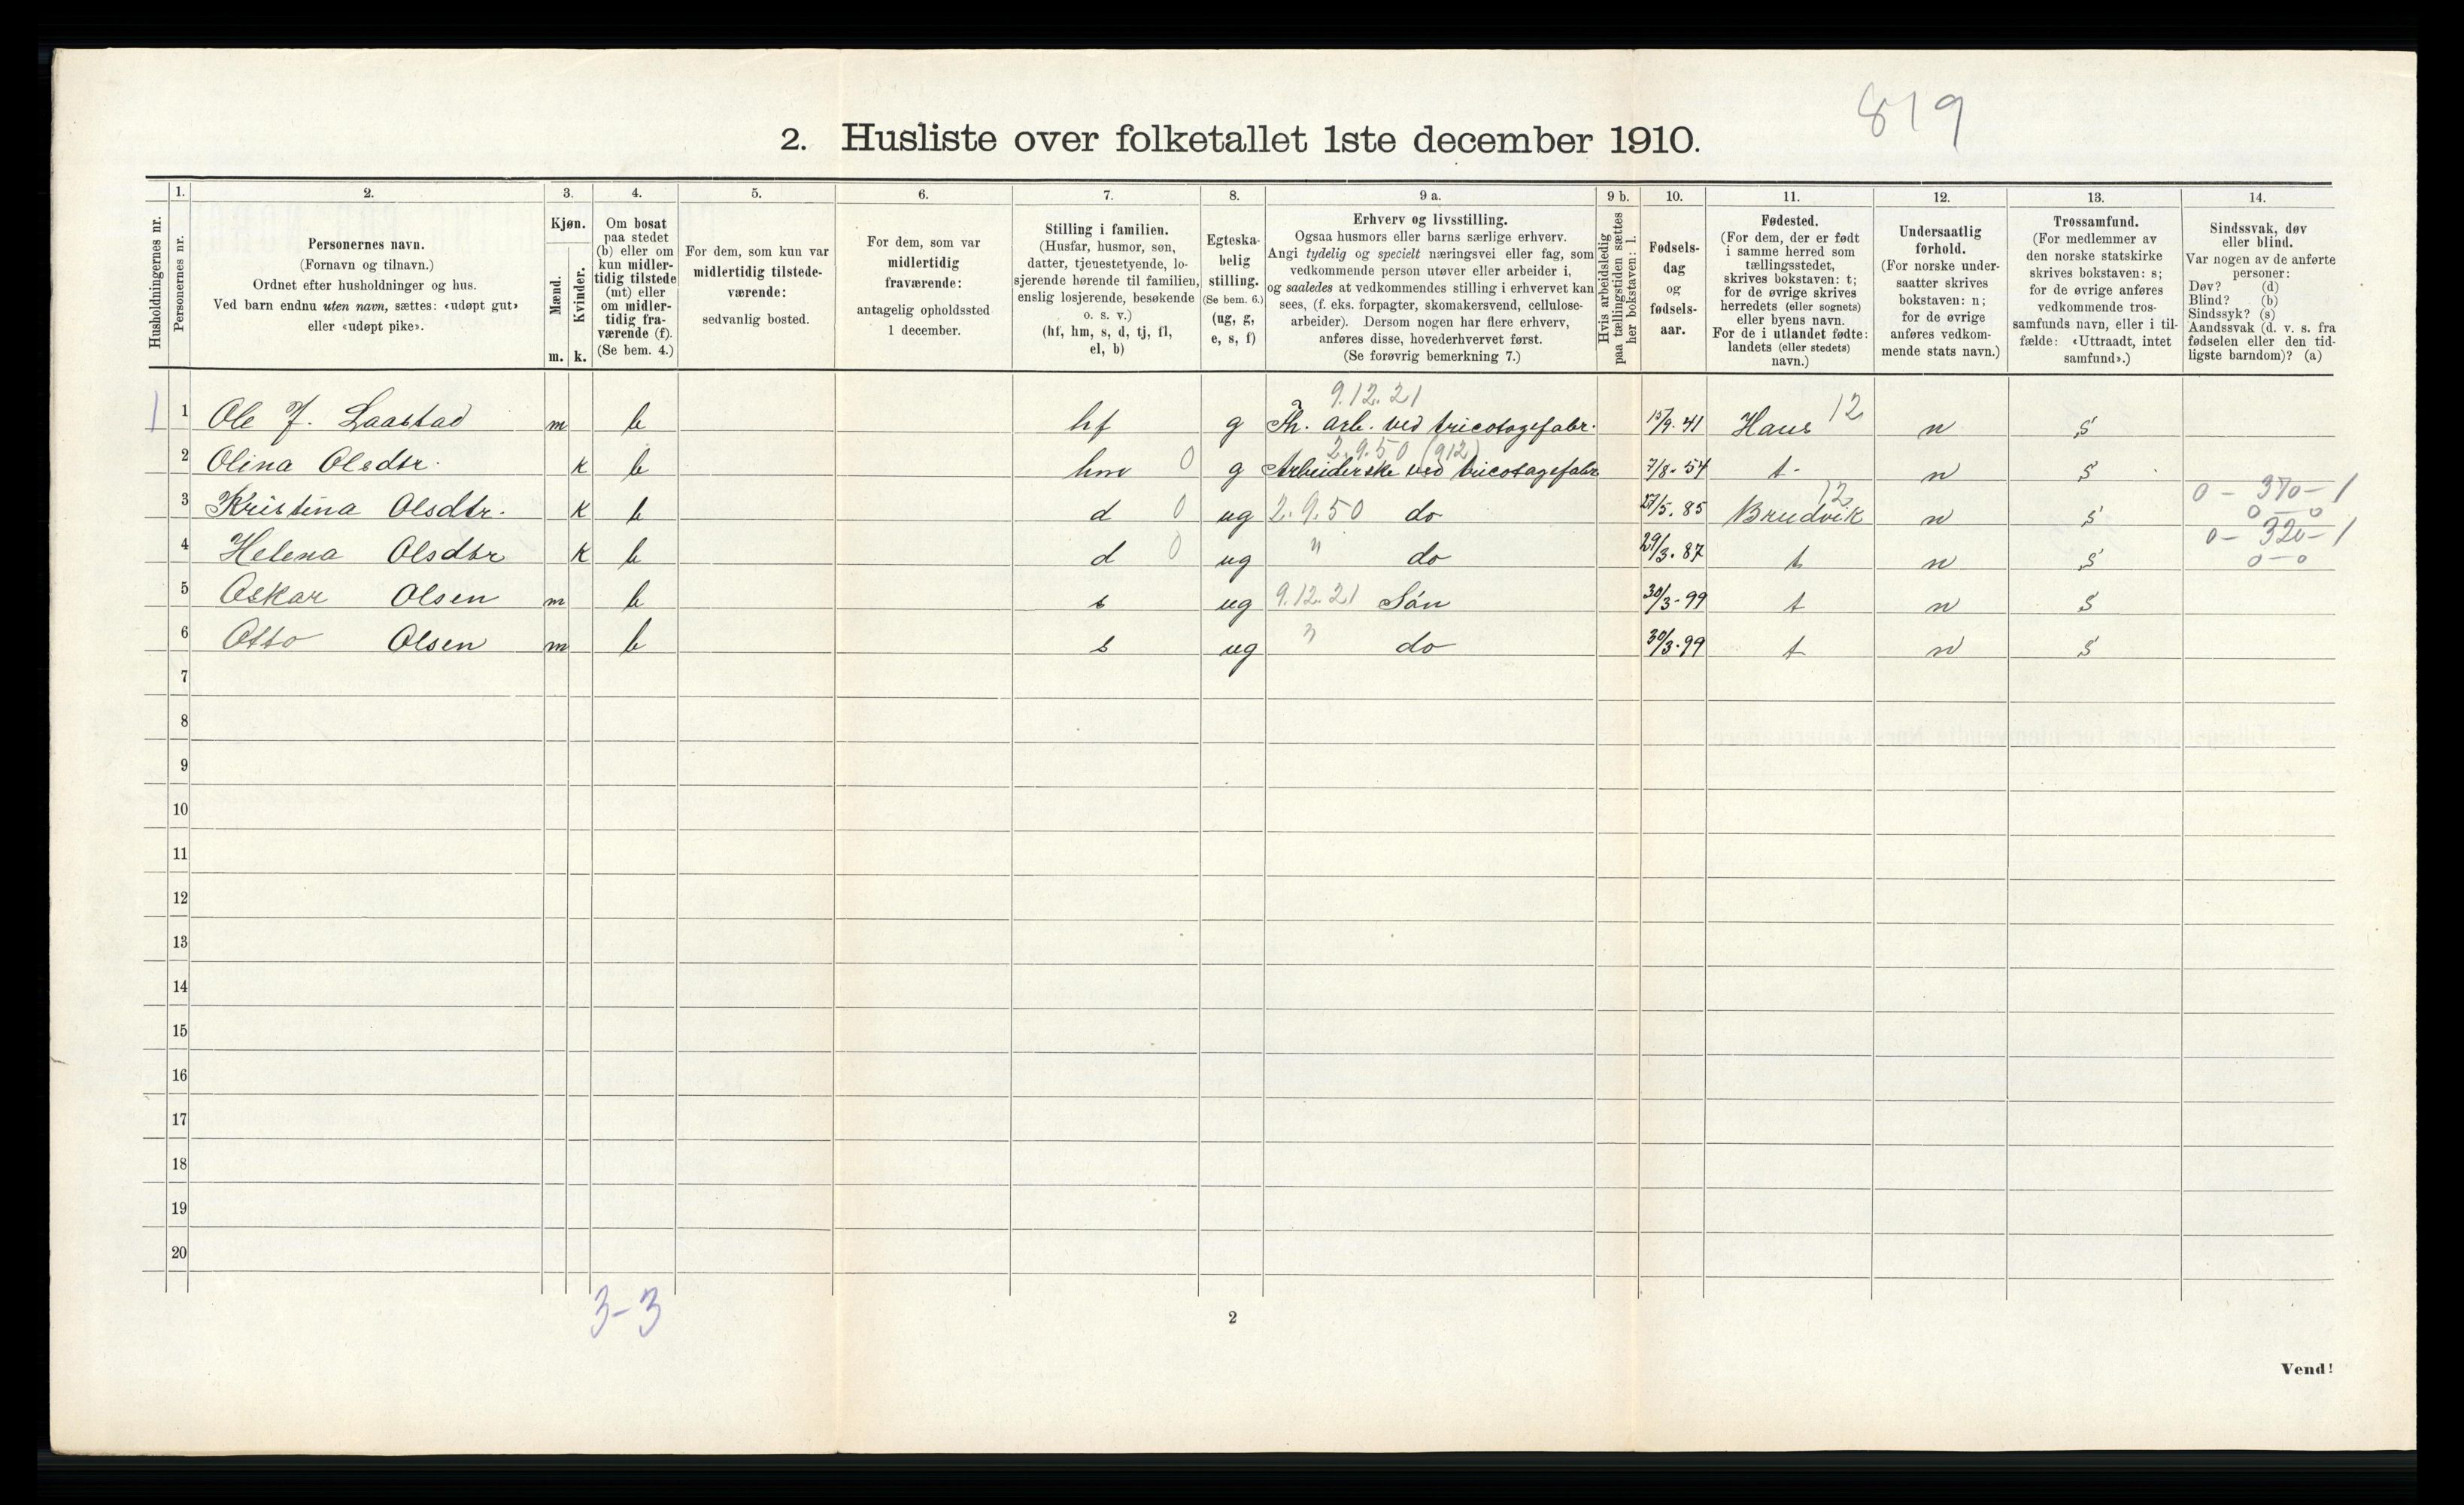 819
2. Husliste over folketallet 1ste december 1910.
Husholdningernes nr.
1.
Personernes nr.
2.
Personernes navn.
(Fornavn og tilnavn.)
Ordnet efter husholdninger og hus.
Ved barn endnu uten navn, sættes: «udøpt gut»
eller «udøpt pike».
3.
Kjøn.
Mænd.
Kvinder.
m. k.
4.
Om bosat
paa stedet
(b) eller om
kun midler-
tidig tilstede
(mt) eller
om midler-
tidig fra-
værende (f).
(Se bem. 4.)
5.
For dem, som kun var
midlertidig tilstede-
værende:
sedvanlig bosted.
6.
For dem, som var
midlertidig
fraværende:
antagelig opholdssted
1 december.
7.
Stilling i familien.
(Husfar, husmor, søn,
datter, tjenestetyende, lo-
sjerende hørende til familien,
enslig losjerende, besøkende
o. s. v.)
(hf, hm, s, d, tj, fl,
el, b)
8.
Egteska-
belig
stilling.
(Se bem. 6.)
(ug, g,
e, s, f)
9 a.
Erhverv og livsstilling.
Ogsaa husmors eller barns særlige erhverv.
Angi tydelig og specielt næringsvei eller fag, som
vedkommende person utøver eller arbeider i,
og saaledes at vedkommendes stilling i erhvervet kan
sees, (f. eks. forpagter, skomakersvend, cellulose-
arbeider). Dersom nogen har flere erhverv,
anføres disse, hovederhvervet først.
(Se forøvrig bemerkning 7.)
9 b.
Hvis arbeidsledig
paa tællingstiden sættes
her bokstaven: l.
10.
Fødsels-
dag
og
fødsels-
aar.
11.
Fødested.
(For dem, der er født
i samme herred som
tællingsstedet,
skrives bokstaven: t;
for de øvrige skrives
herredets (eller sognets)
eller byens navn.
For de i utlandet fødte:
landets (eller stedets)
navn.)
12.
Undersaatlig
forhold.
(For norske under-
saatter skrives
bokstaven: n;
for de øvrige
anføres vedkom-
mende stats navn.)
13.
Trossamfund.
(For medlemmer av
den norske statskirke
skrives bokstaven: s;
for de øvrige anføres
vedkommende tros-
samfunds navn, eller i til-
fælde: «Uttraadt, intet
samfund».)
14.
Sindssvak, døv
eller blind.
Var nogen av de anførte
personer:
Døv? (d)
Blind? (b)
Sindssyk? (s)
Aandssvak (d. v. s. fra
fødselen eller den tid-
ligste barndom)? (a)
9.12.21
1 1 Ole J. Laastad m b hf g Th. arb. ved tricotagefabr. 15/9. 41 Haus 12 n s
2.9.50 (912)
2 Olina Olsdtr. k b hm 0 g Arbeiderske ved tricotagefabr 7/8. 54 t n s
3 Kristina Olsdtr. k b d 0 ug 2.9.50 do 27/5. 85 Brudvik 12 n s 0 - 370 - 1
0 - 0
4 Helena Olsdtr k b d 0 ug " do 29/3. 87 t n s 0 - 320 - 1
0 - 0
5 Oskar Olsen m b s ug 9.12.21 Sön 30/3-99 t n s
6 Otto Olsen m b s ug " do 30/3-99 t n s
7
8
9
10
11
12
13
14
15
16
17
18
19
20
3-3
2
Vend!